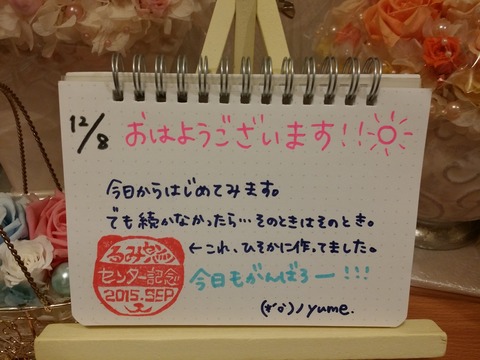 12/8
おはようございます!!
今日からはじめてみます。
でも続かなかったら…そのときはそのとき。
←これ、ひそかに作ってました。
るみ
センター記念
2015.SEP
今日もがんばろー!!!
yume.